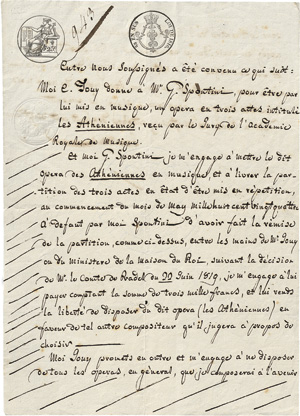 Entre nous Soussignés a été convenu ce qui suit:
Moi E. Jouy donne à Mr. G. Spontini, pour être par
lui mis en musique, un opera en trois actes intitulé
les Athéniennes, reçu par le Jury de l'Academie
Royale de Musique.
Et moi G. Spontini je m'engage à mettre le dit
opera des Athéniennes en musique et à livrer la par-
tition des trois actes en état d'être mis en répétition,
au commencement du mois de May milhuit cent vingt quatre
à défaut par moi Spontini d'avoir fait la remise
de la partition, comme ci-dessus, entre les mains de Mr Jouy
ou du ministère de la maison du Roi, suivant la décision
de Mr. le Comte de Pradel du 20 Juin 1819, je m'engage à lui
payer comptant la somme de trois mille francs, et lui rends
la liberté de disposer du dit opera (les Athéniennes) en
faveur de tel autre Compositeur qu'il jugera à propos de
choisir.
Moi Jouy promets en outre et m'engage à ne disposer
de tous les operas, en général, que je composerai à l'avenir